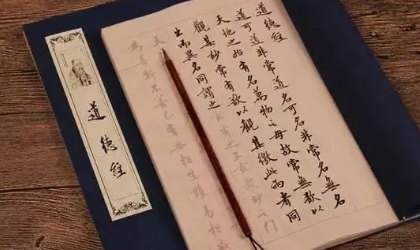 道德經
道可道非常道名可名非常名無名
天地之始有名萬物之母故常無欲以
觀其妙常有欲以觀其徼此兩者同
出而異名同謂之
道德經